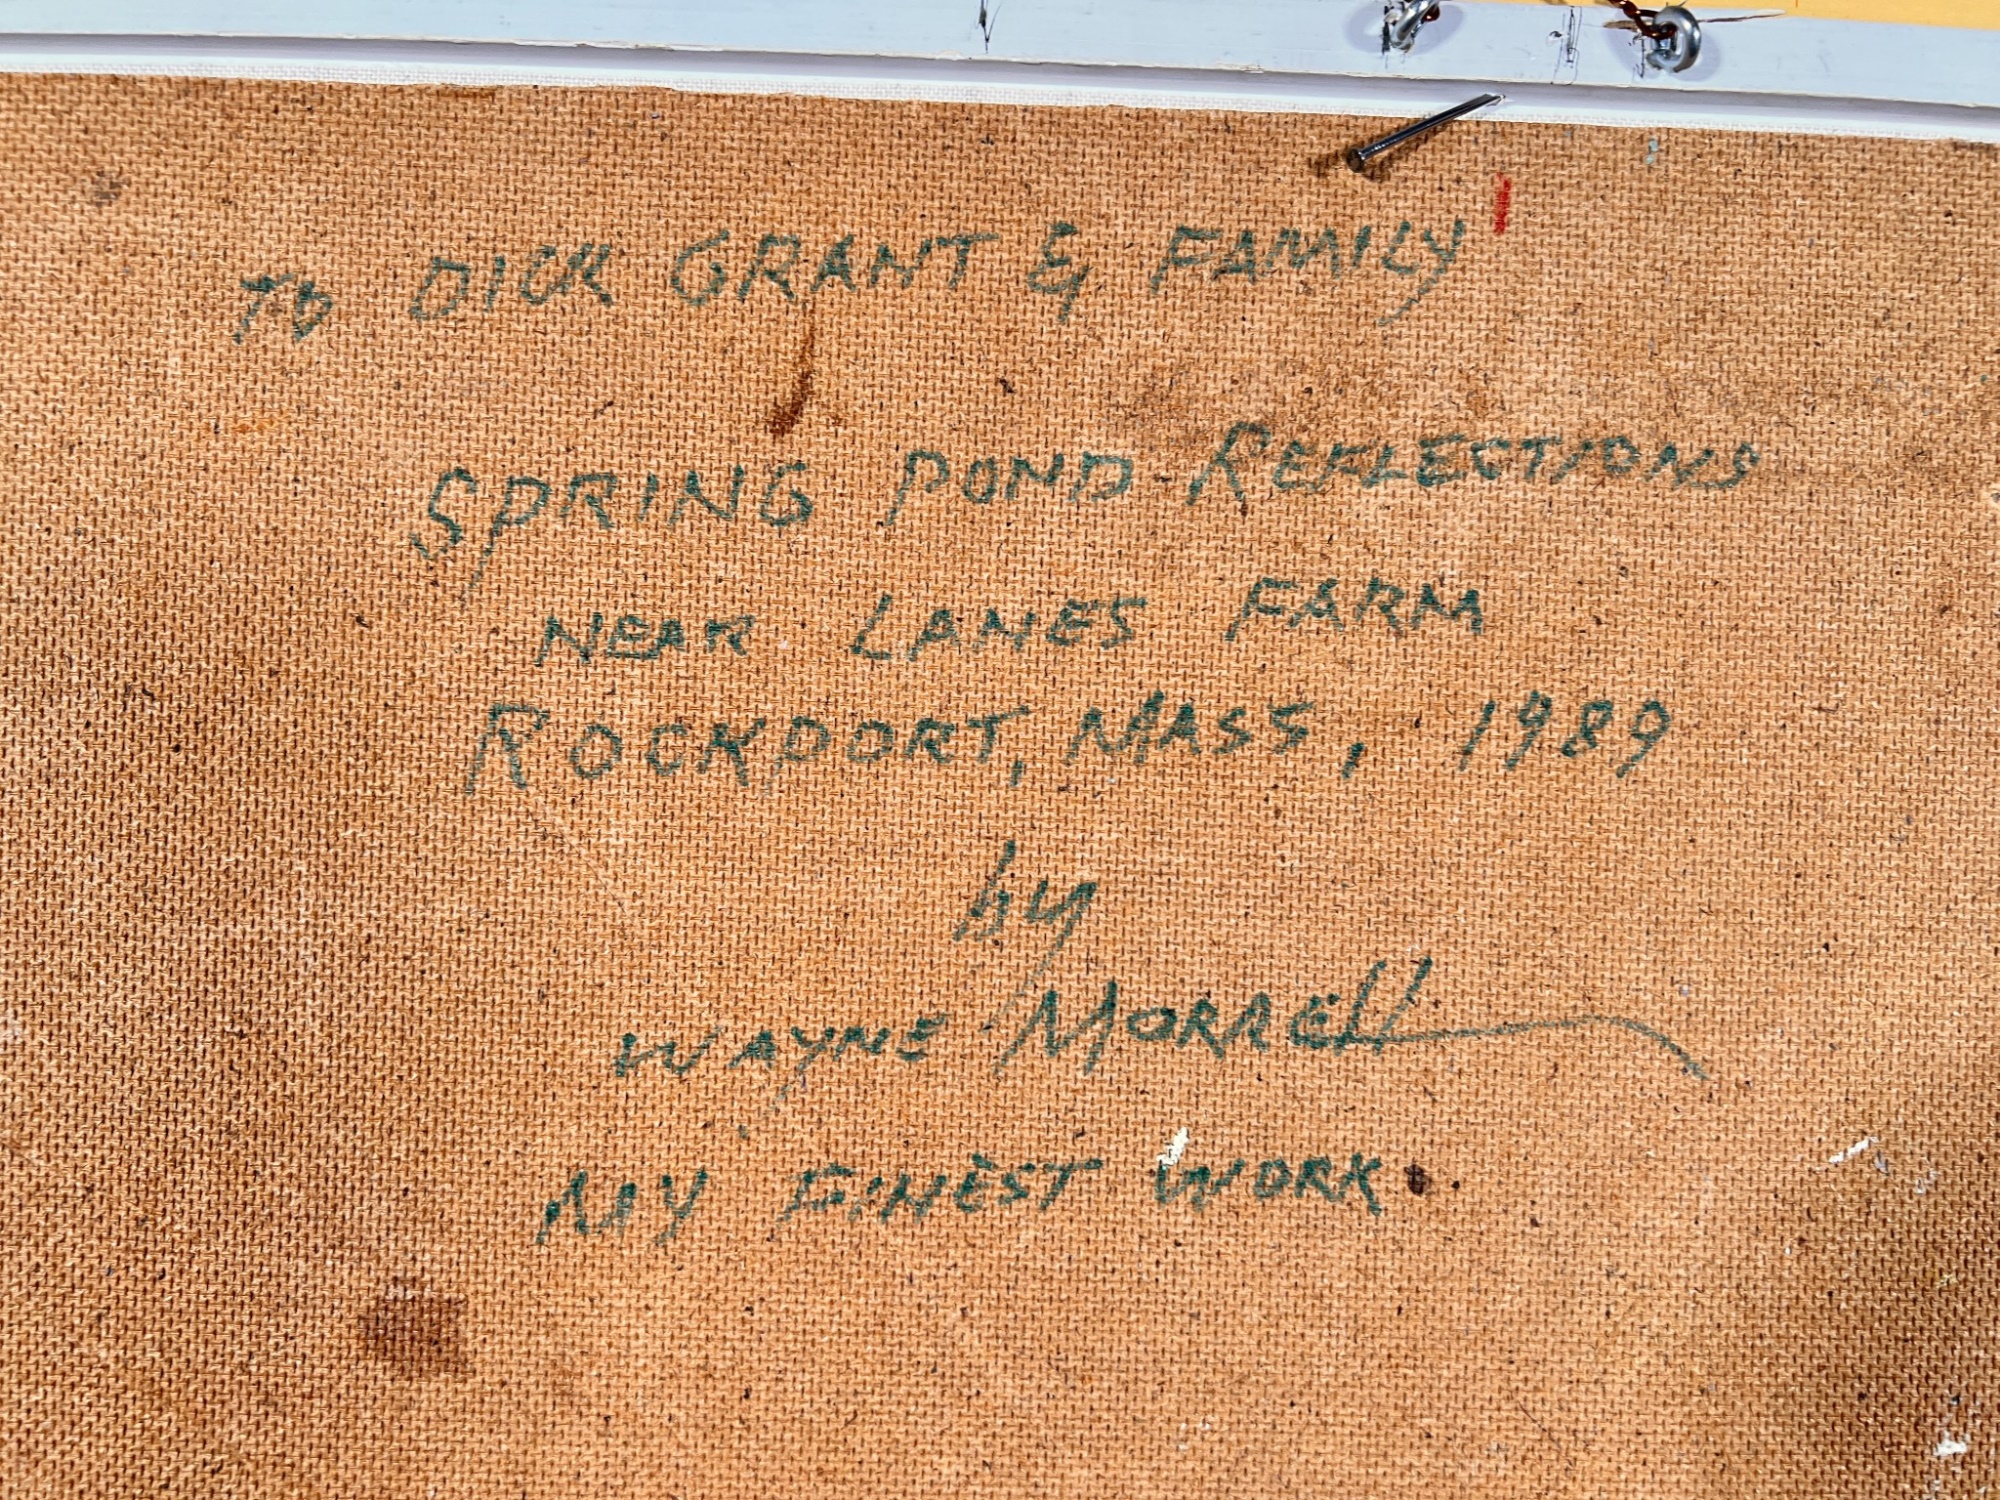 TO DICK GRANT & FAMILY
SPRING POND REFLECTIONS
NEAR LANES FARM
ROCKPORT, MASS, 1989
by
WAYNE MORRELL
MY FINEST WORK